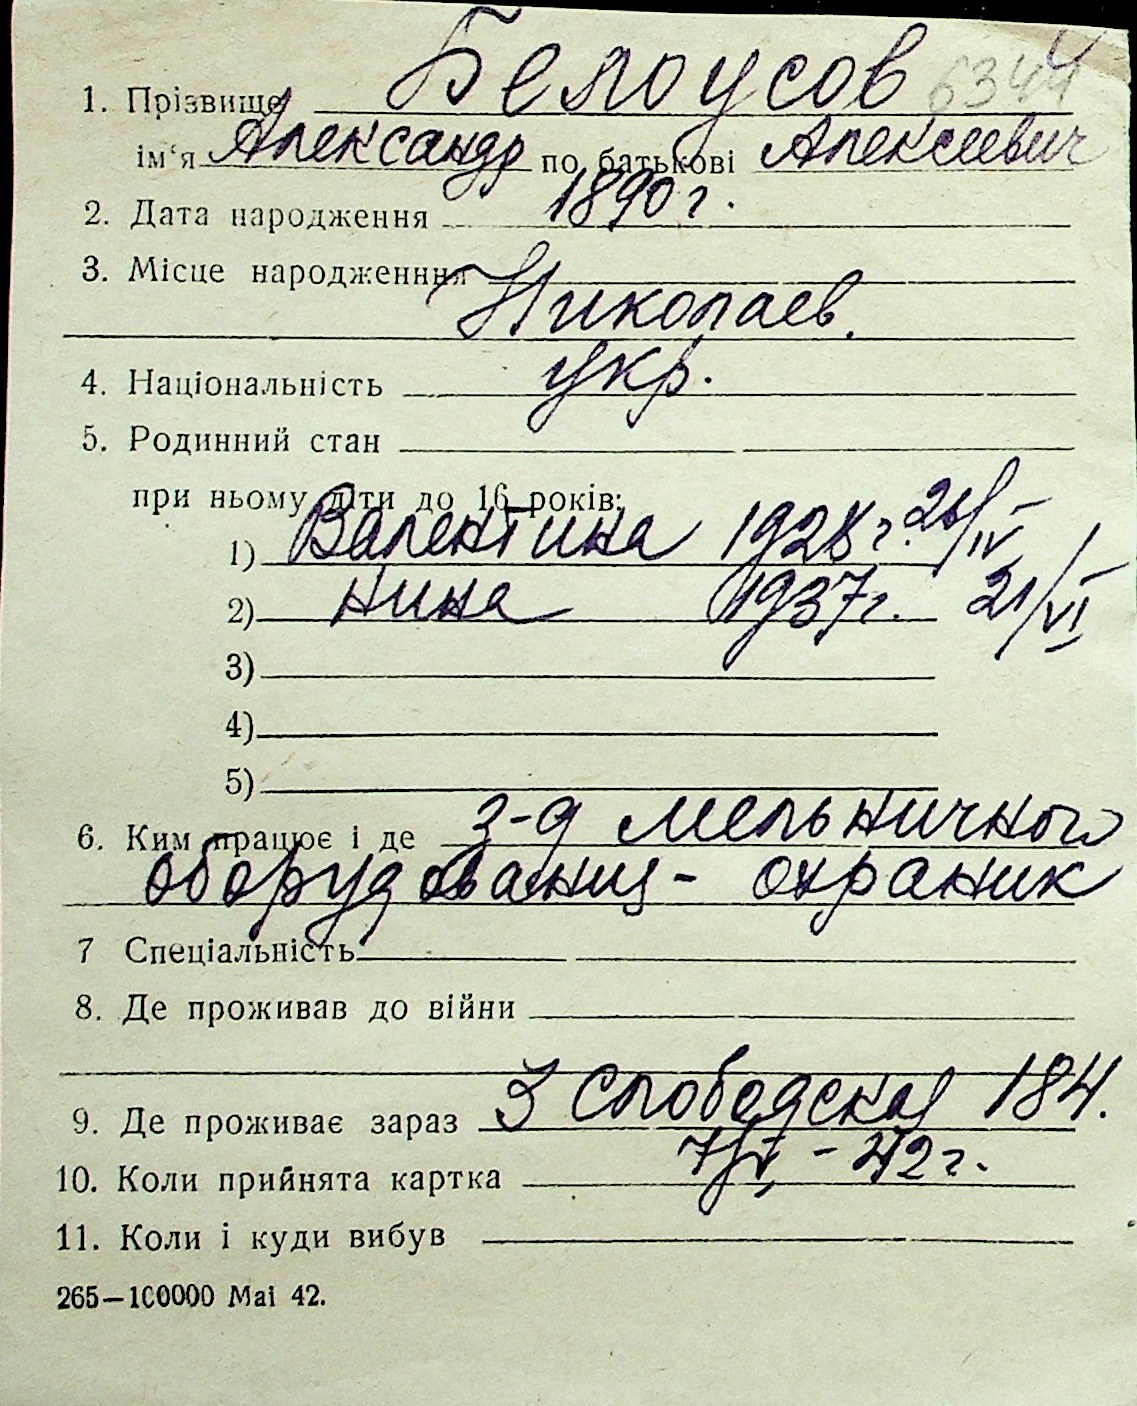 6344
1. Прізвище Белоусов
ім'я Александр по батькові Алексеевич
2. Дата народження 1890 г.
3. Місце народженння
Николаев.
4. Національність укр.
5. Родинний стан
при ньому діти до 16 років:
1) Валентина 1928 г. 26/IV
2) Нина 1937 г. 21/VI
3)
4)
5)
6. Ким працює і де з-д мельничного
оборудования - охраник
7 Спеціальність
8. Де проживав до війни
9. Де проживає зараз 3 Слободская 184.
10. Коли прийнята картка - 42 г.
11. Коли і куди вибув
265—100000 Mai 42.